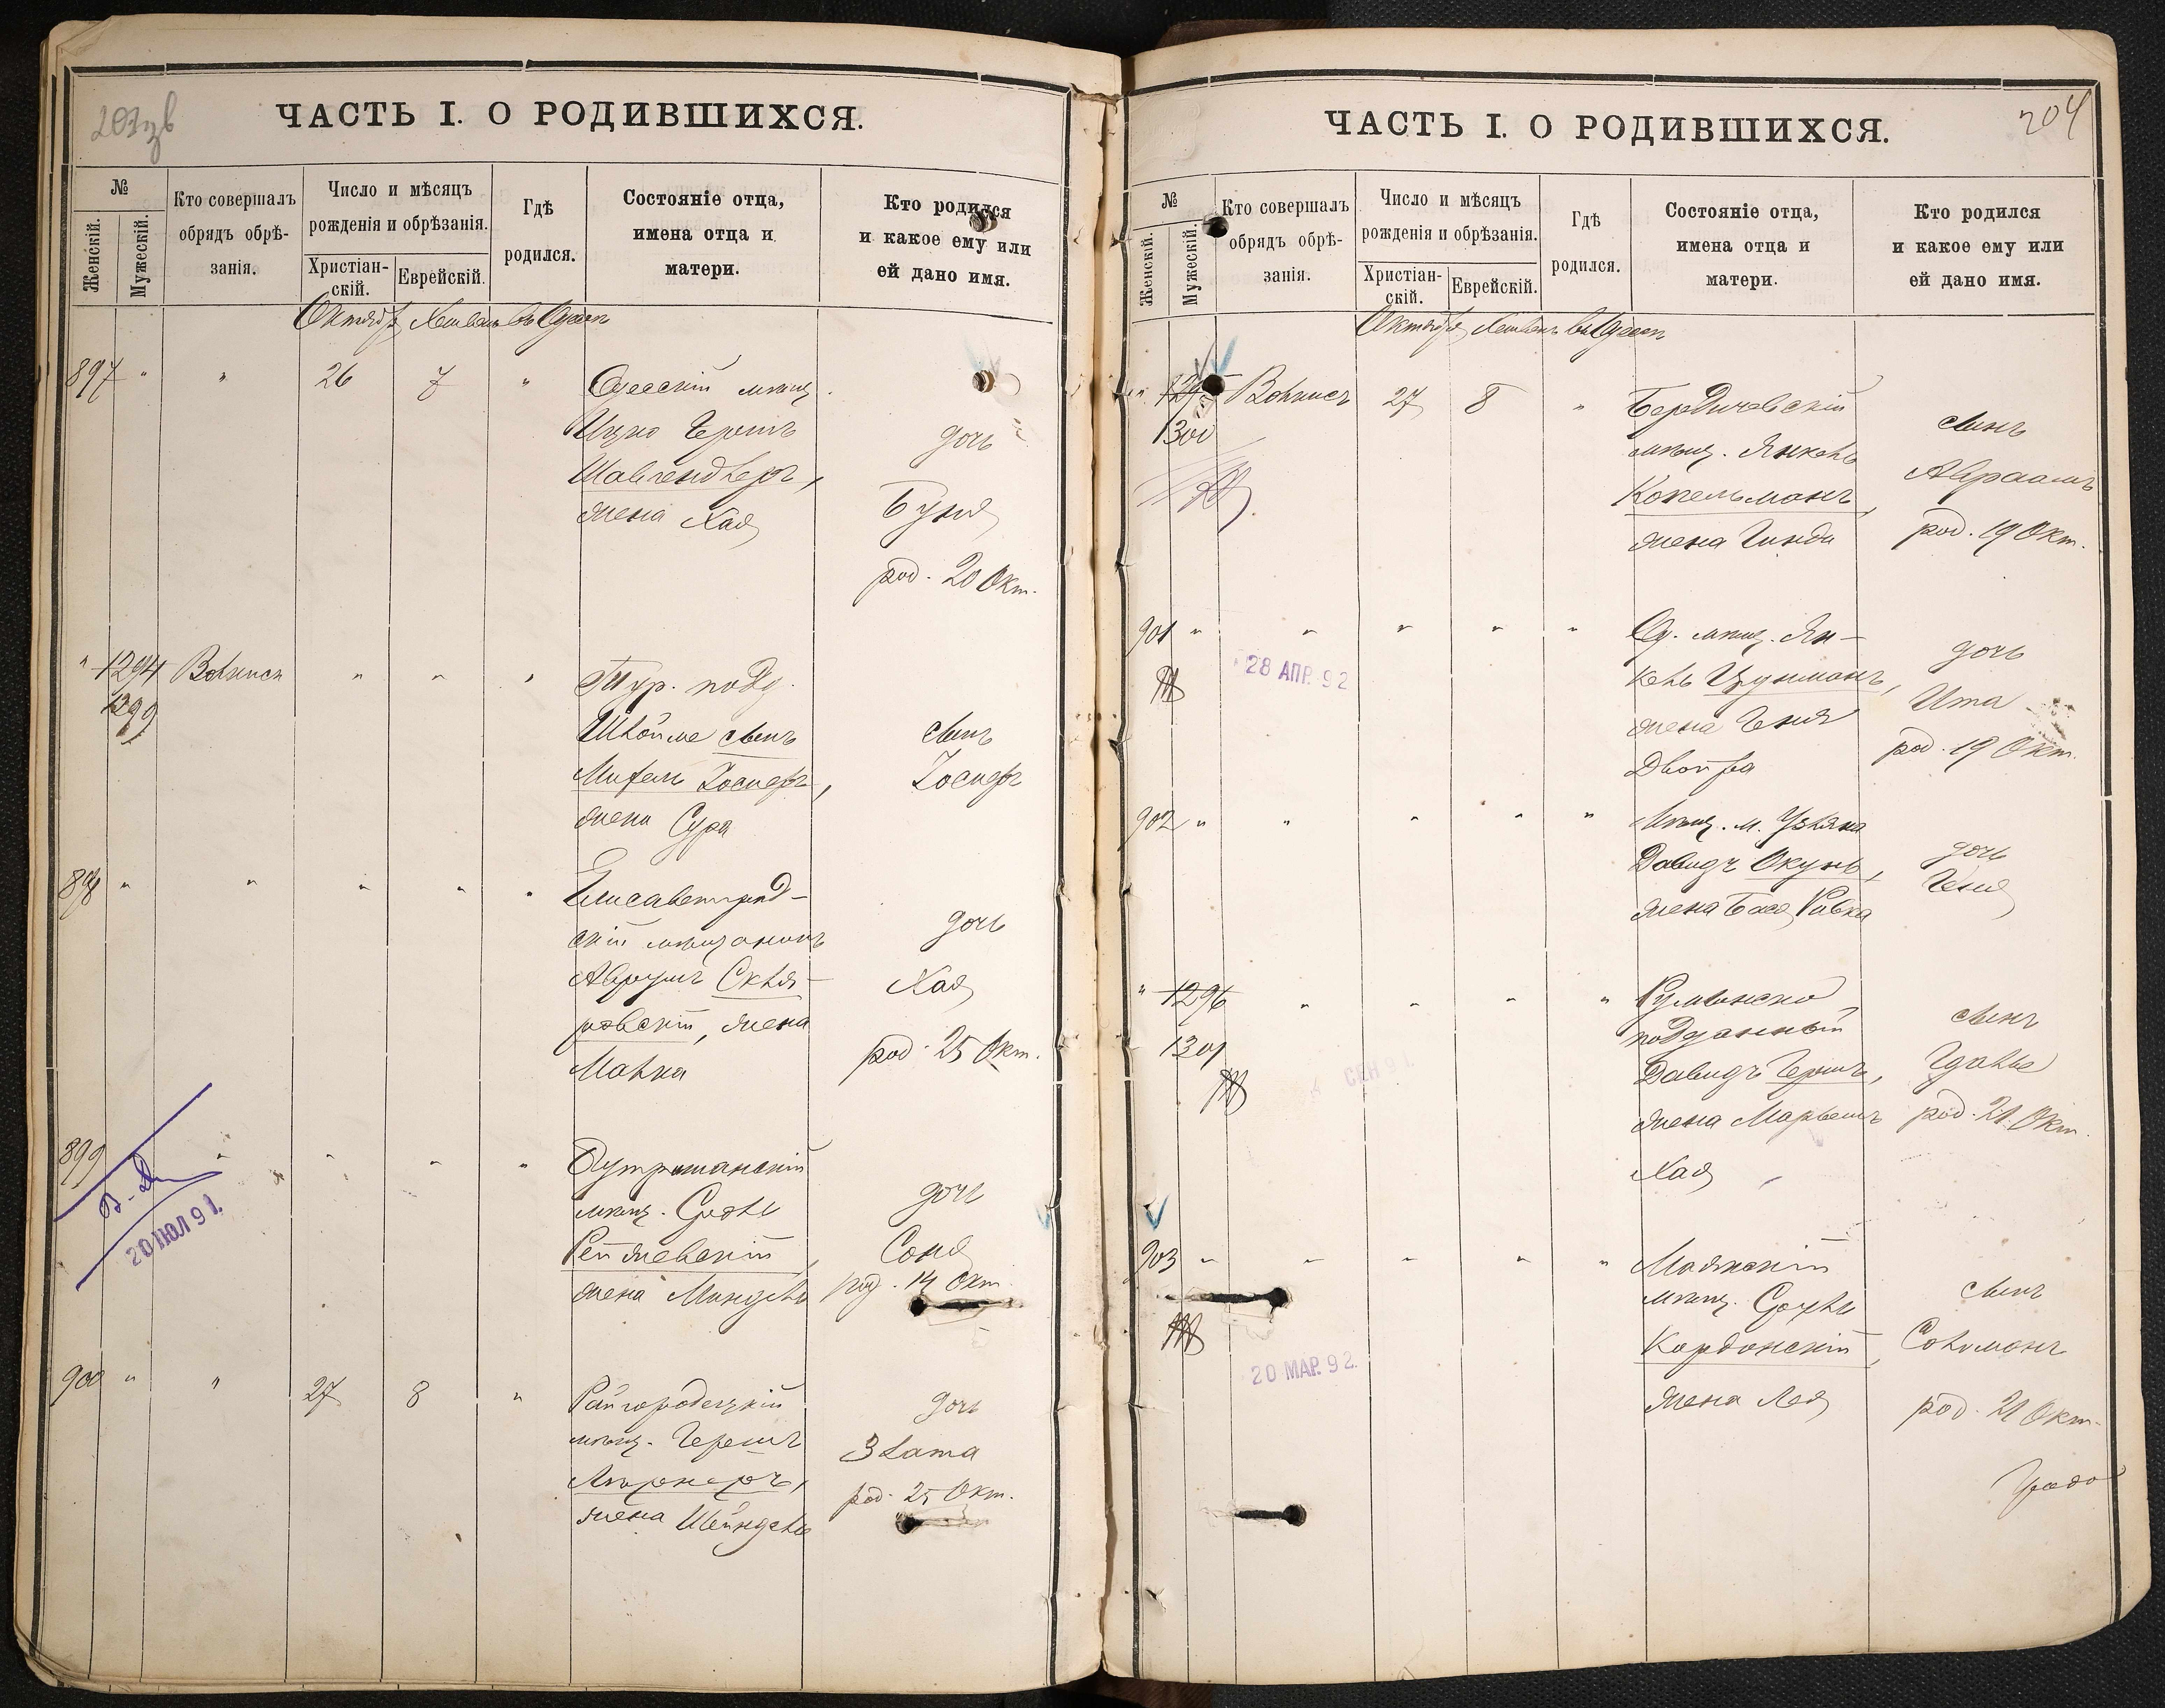 203 зв
ЧАСТЬ I. О РОДИВШИХСЯ.
№
Женскій.
Мужескій.
Кто совершалъ
обрядъ обрѣ-
занія.
Число и мѣсяцъ
рожденія и обрѣзанія.
Христіан-
скій.
Еврейскій.
Гдѣ
родился.
Состояніе отца,
имена отца и
матери.
Кто родился
и какое ему или
ей дано имя.
Октябрь Хешванъ въ Одессѣ
897 " " 26 7 " Одесскій мѣщ.
Ицко Гершъ
жена Хая
дочь
Буня
род. 20 Окт.
" 1294 " " "
1299
Тур. подд.
Шлойме сынъ
Михель Іосифъ,
жена Сура
сынъ
Іосифъ
898 " " " " "
Елисаветград-
скій мѣщанинъ
Аврумъ Скля-
ровскій, жена
Малка
дочь
Хая
род. 25 Окт.
899 " " " "
20 ІЮЛ 91.
мѣщ.
жена Миндель
дочь
Соня
род. 14 Окт.
900 " " 27 8 "
Райгородецкій
мѣщ. Гершъ
жена Шейндель
дочь
Злата
род. 25 Окт.
204
ЧАСТЬ I. О РОДИВШИХСЯ.
№
Женскій.
Мужескій.
Кто совершалъ
обрядъ обрѣ-
занія.
Число и мѣсяцъ
рожденія и обрѣзанія.
Христіан-
скій.
Еврейскій.
Гдѣ
родился.
Состояніе отца,
имена отца и
матери.
Кто родился
и какое ему или
ей дано имя.
Октябрь Хешванъ въ Одессѣ
" 1295 27 8 "
1300
Бердичевскій
мѣщ. Янкель
Копельманъ,
жена Гинда
сынъ
Авраамъ
род. 19 Окт.
901 " " " " "
28 АПР. 92
Од. мѣщ. Ян-
кель Цукманъ,
жена Геня
Двойра
дочь
Ита
род. 19 Окт.
902 " " " " "
Мѣщ. м. Узляна
Давидъ Окунь,
жена Бася Ривка
дочь
Геня
" 1296 " " " "
1301
СЕН 91.
Румынско
подданный
Давидъ Гершъ,
жена
Хая
сынъ
род. 21 Окт.
903 " " " " "
20 МАР. 92.
Маякскій
мѣщ.
Кордонскій,
жена Лея
сынъ
Соломонъ
род. 21 Окт.